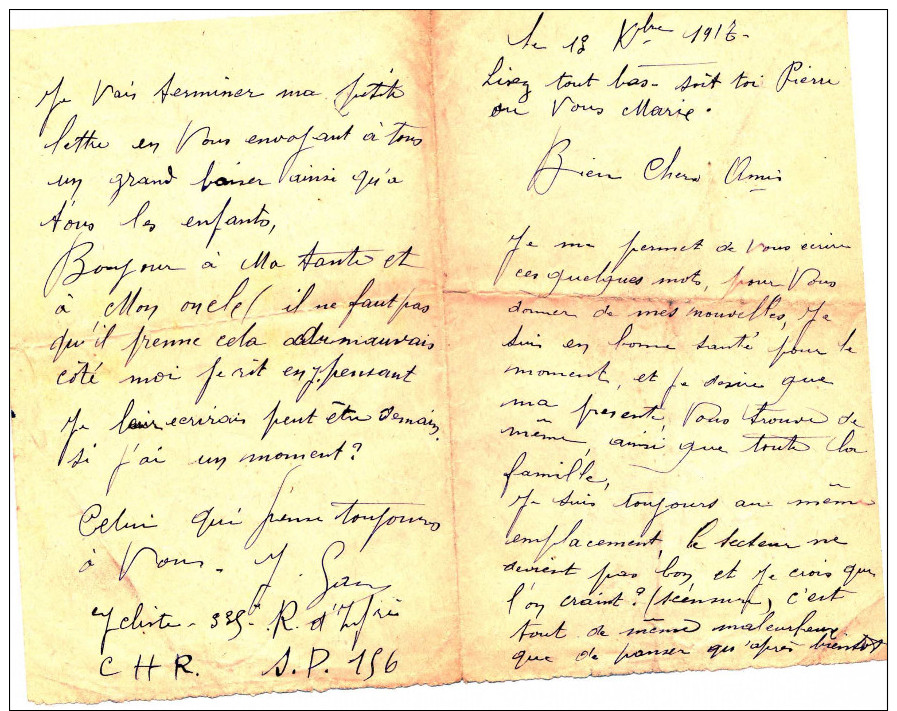 Le 18 Xbre 1917-
Lisez tout bas- soit toi Pierre
ou Vous Marie.
Bien Chers Amis
Je me permet de Vous ecrire
ces quelques mots, pour Vous
donner de mes nouvelles, Je
suis en bonne santé pour le
moment, et Je desire que
ma presente, Vous trouve de
même, ainsi que toute la
famille,
Je suis toujours au même
emplacement, le secteur ne
devient pas bon et Je crois que
l'on craint? c'est
tout de même maleurheux
que de panser qu'après bientot
Je Vais terminer ma petite
lettre en Vous envoyant à tous
un grand baiser ainsi qu'a
tous les enfants,
Bonjour à Ma tante et
à Mon oncle ( il ne faut pas
qu'il prenne cela du mauvais
côté moi Je rit en y pensant
Je leur ecrirais peut être demain,
si j'ai un moment?
Celui qui pense toujours
à Vous. J.
Cycliste - R. d'Inf
C H R. S.P. 156